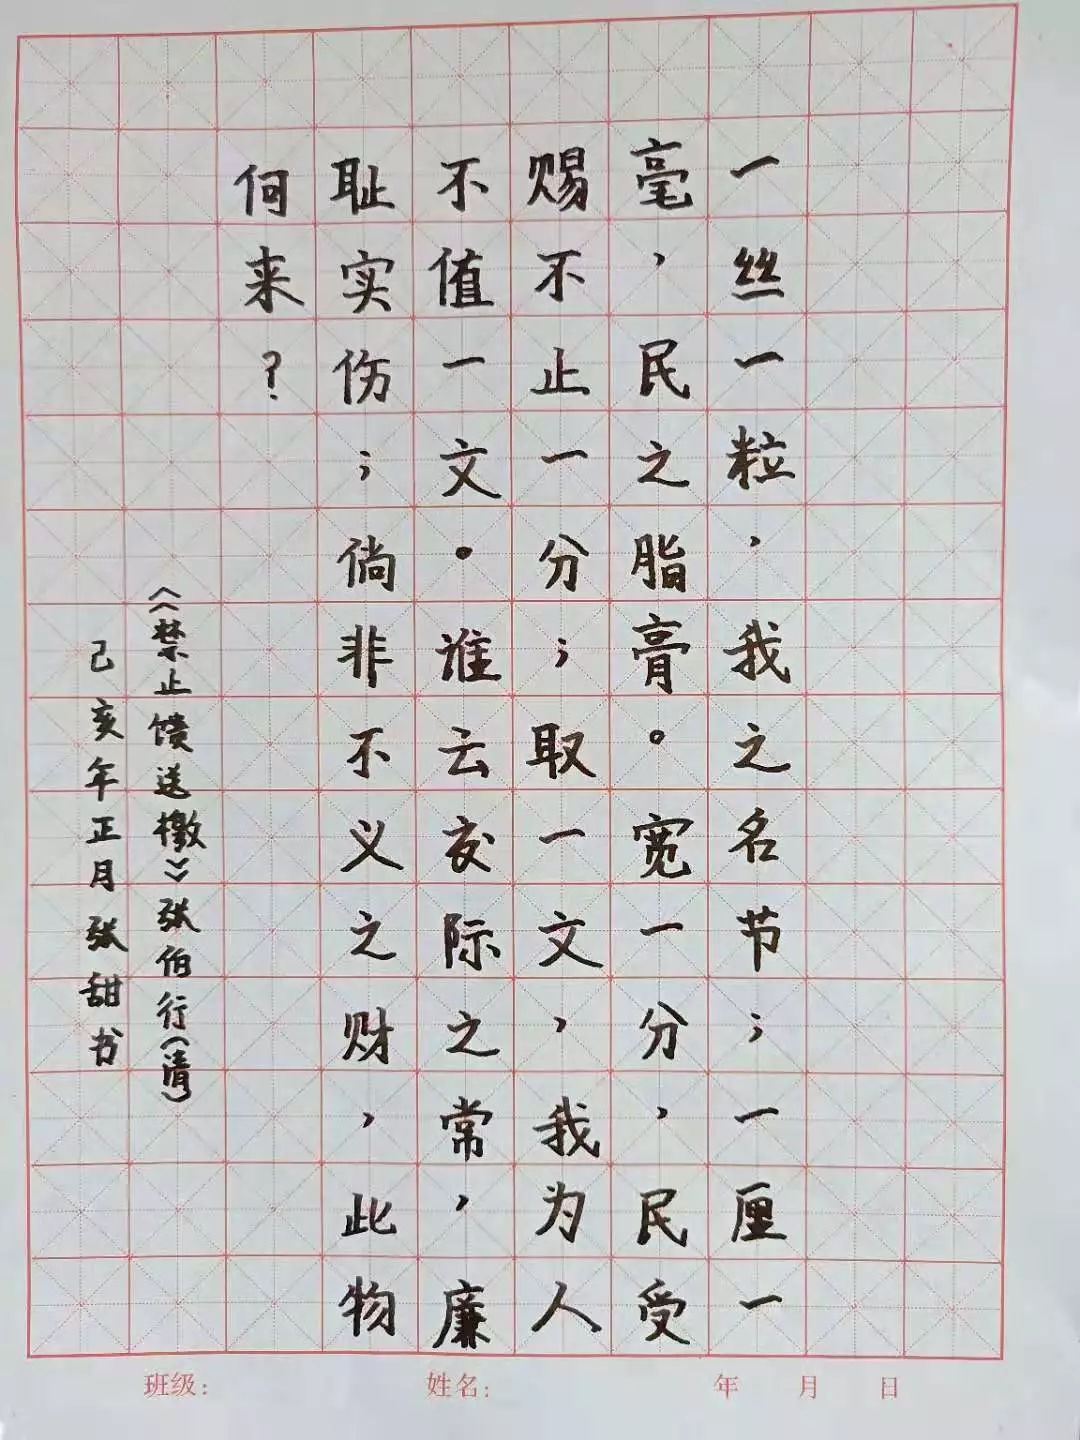 一丝一粒，我之名节；一厘一
毫，民之脂膏。宽一分，民受
赐不止一分；取一文，我为人
不值一文。谁云交际之常，廉
耻实伤；倘非不义之财，此物
何来？
《禁止馈送檄》张伯行（清）
己亥年正月张甜书
班级： 姓名： 年 月 日